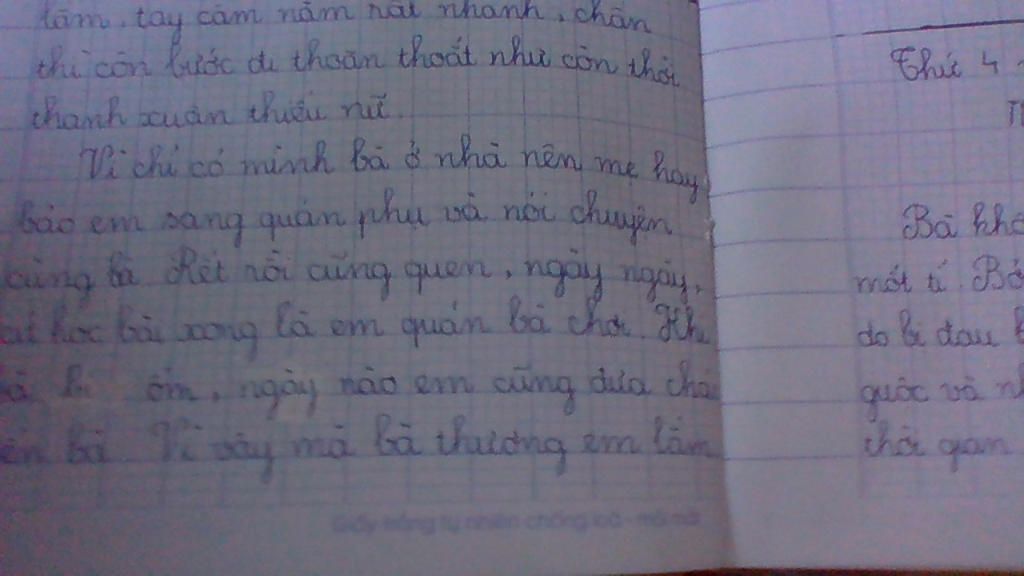 lắm, tay cầm nắm rất nhanh, chân
thì còn bước đi thoăn thoắt như còn thời
thanh xuân thiếu nữ.
Vì chỉ có mình bà ở nhà nên mẹ hay
bảo em sang quán phụ và nói chuyện
cùng bà. Rết rồi cũng quen, ngày ngày,
học bài xong là em quán bà chơi. Kh
bị ốm, ngày nào em cũng đưa chá
bà. Vì vậy mà bà thương em lắm
Giấy trắng tự nhiên chống loá - mỏi mắt
Thứ 4
Bà khô
một tí. Bở
do bị đau
quốc và nh
thời gian